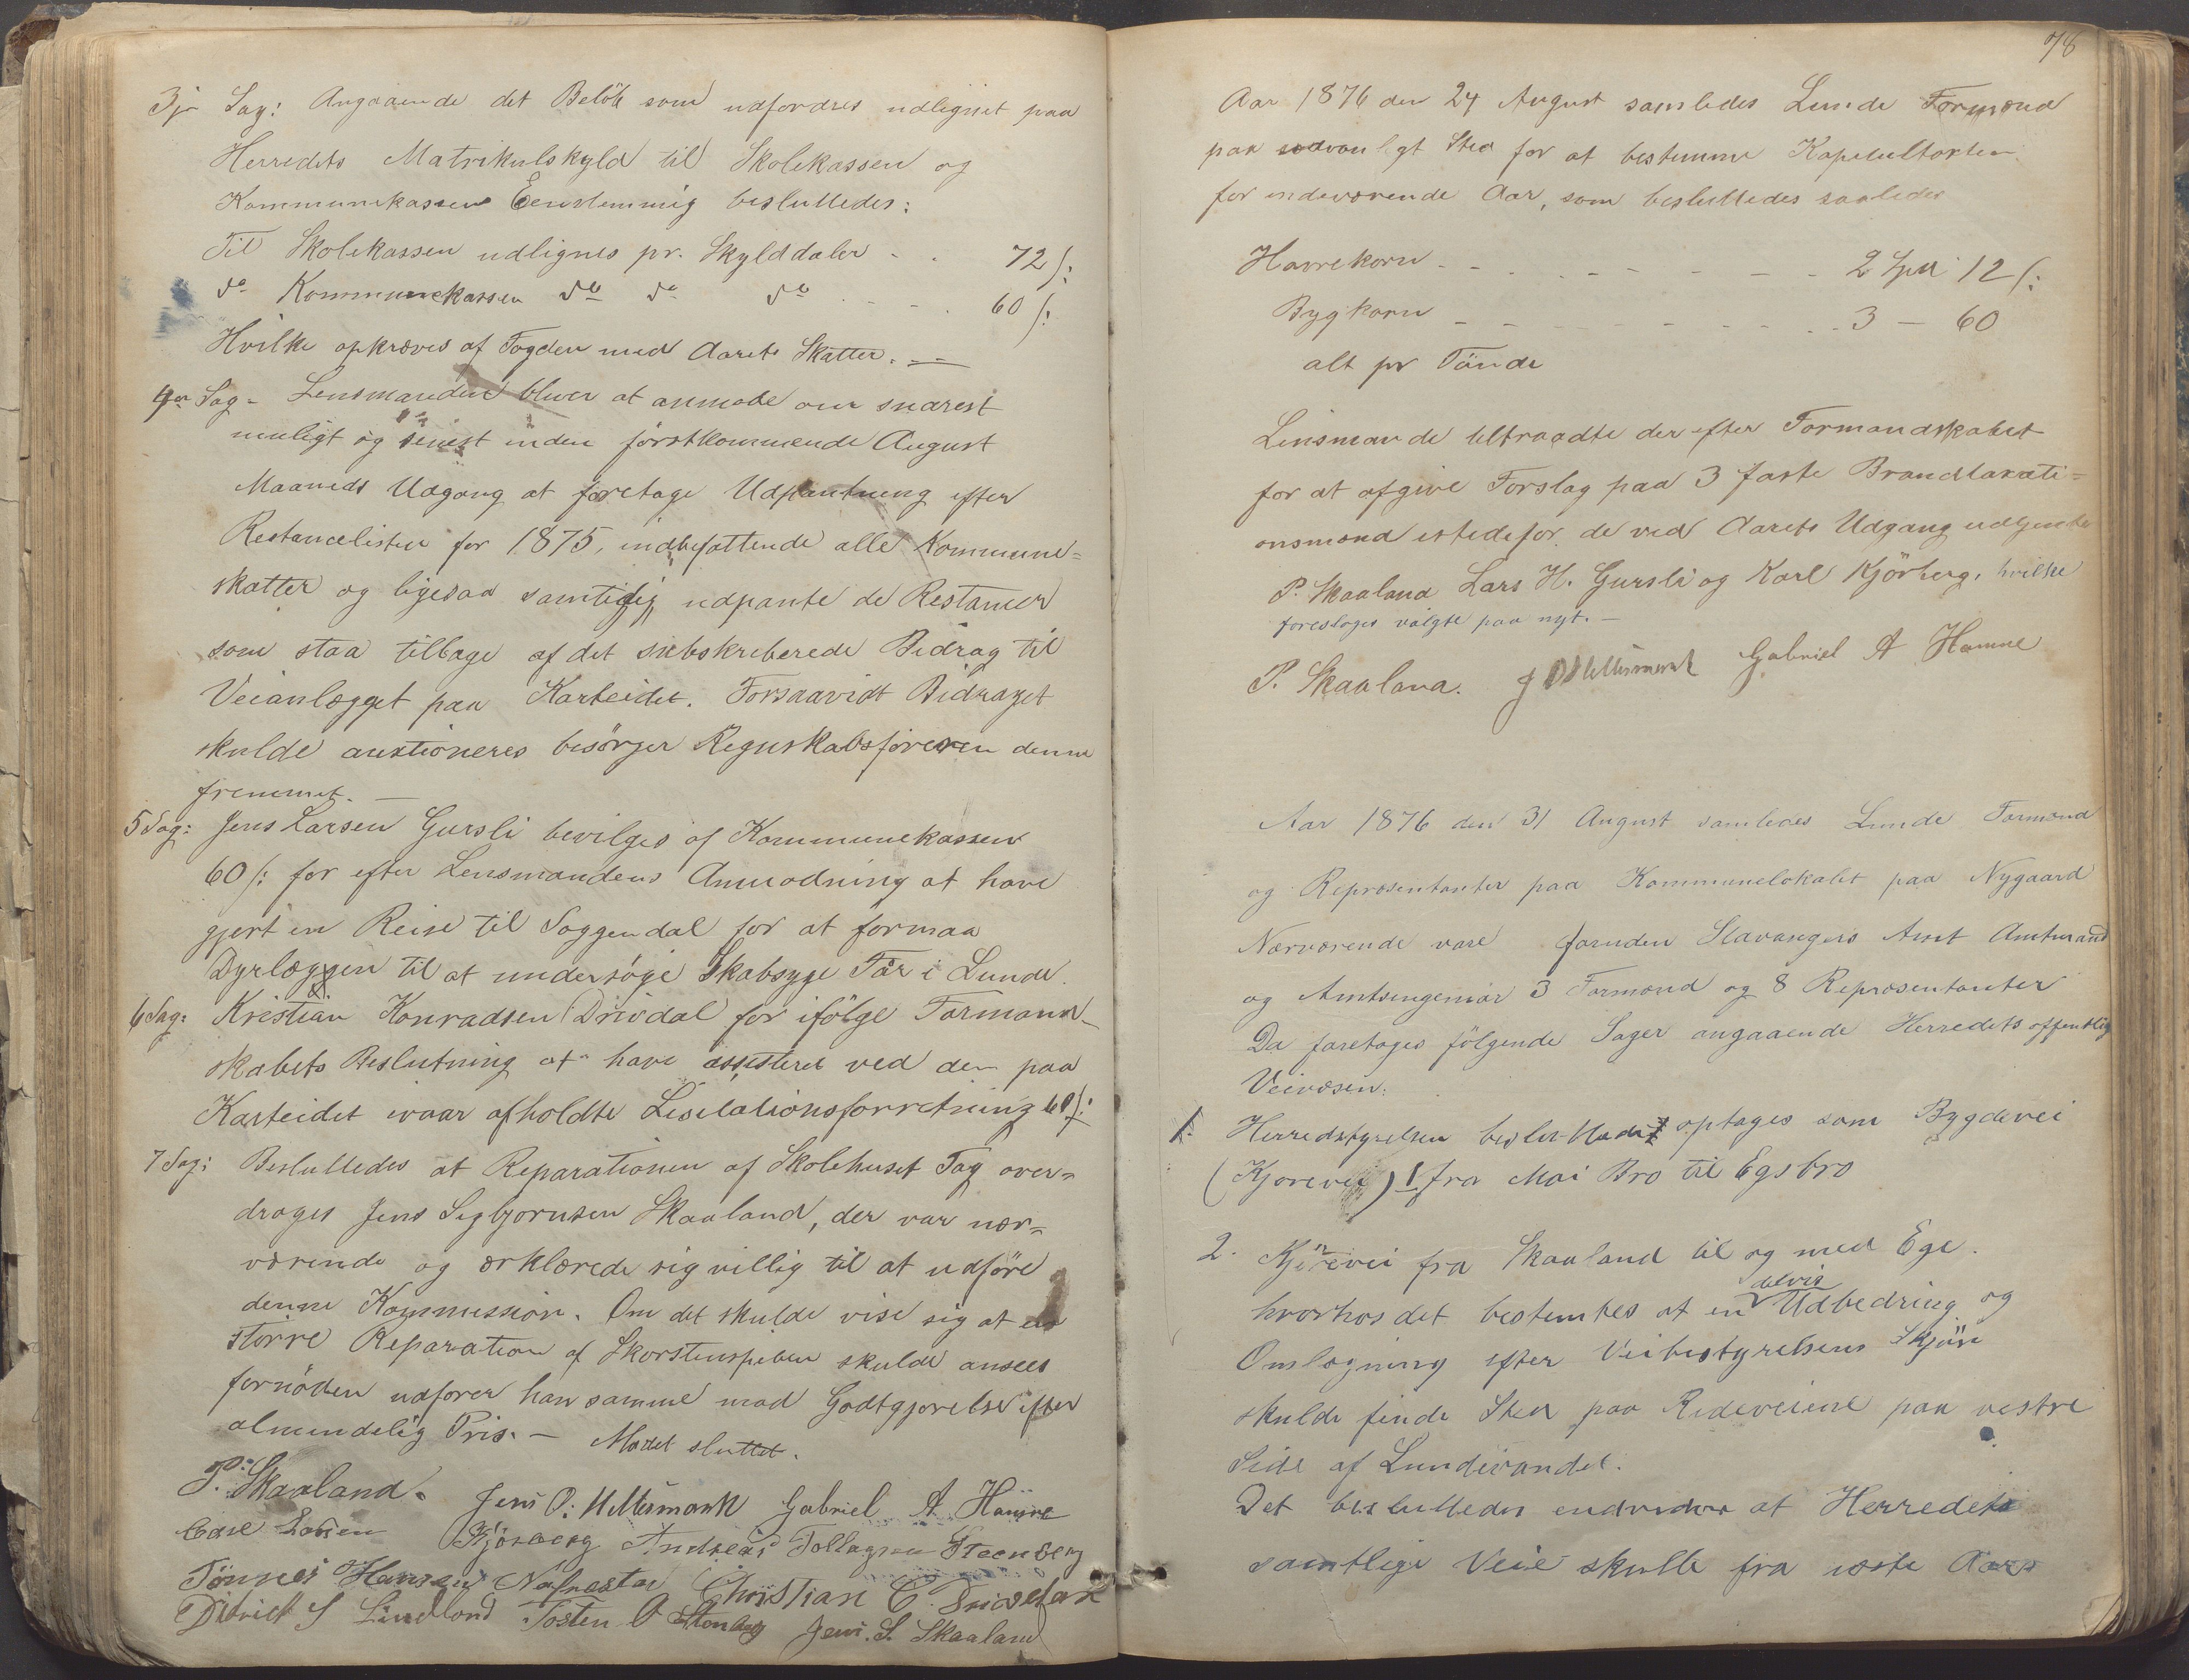 3je Sag: Angaaende det Belöb som udfordres udlignet paa
Herredets Matrikulskyld til Skolekassen og
Kommunekassen Eenstemmig beslutledes:
Til Skolekassen udlignes pr. Skylddaler - - 72 /:
do Kommunekassen do do do - - - 60 /:
Hvilke opkræves af Fogden med Aarets Skatter. —
4de Sag - Lensmanden bliver at anmode om snarest
muligt og senest inden förstkommende August
Maaneds Udgang at foretage Udpantning efter
Restancelisten for 1875, indbefattende alle Kommune=
skatter og ligesaa samtidig udpante de Restancer
som staa tilbage af det subskriberede Bidrag til
Veianlægget paa Karteidet. Forsaavidt Bidraget
skulde auktioneres besörger Regnskabsföreren denne
fremmet. —
5 Sag: Jens Larsen Gursli bevilges af Kommunekassen
60 /: for efter Lensmandens Anmodning at have
gjort en Reise til Soggendal for at formaa
Dyrlægen til at undersöge Skabsyge Får i Lunde.
6 Sag: Kristian Konradsen Drivdal for ifölge Formand-
skabets Beslutning at have assisteret ved den paa
Karteidet ivaar afholdte Lisitationsforretning 60 /:
7 Sag: Beslutledes at Reparationen af Skolehuset Tag over=
drages Jens Sigbjornsen Skaaland, der var nær=
værende og ærklærede sig villig til at udföre
denne Kommission. Om det skulde vise sig at en
större Reparation af Skorstenspiben skulde ansees
fornöden udförer han samme mod Godtgjorelse efter
almindelig Pris. — Mödet sluttet.
P. Skaaland. Jens O. Mellemstrand Gabriel A Hamre
Carl Larsen Kjörberg Andreas Tollagsen Steenberg
Tönnes Hansen Christian C. Drivdal
Didrick S Lindland Tosten O Stenberg Jens. S. Skaaland
78
Aar 1876 den 24 August samledes Lunde Formænd
paa sædvanligt Sted for at bestemme Kapeltaxten
for indeværende Aar, som beslutledes saaledes
Havrekorn - - - - - - - - 2 Spd 12 /:
Bygkorn - - - - - - - - 3 — 60
alt pr Tönde
Lensmande tiltraadte derefter Formandskabet
for at afgive Forslag paa 3 faste Brandtaxati=
onsmænd istedefor de ved Aarets Udgang udtjente
P. Skaaland Lars H. Gursli og Karl Kjörberg, hvilke
foresloges valgte paa nyt. —
P. Skaaland. Gabriel A Hamre
Aar 1876 den 31 August samledes Lunde Formænd
og Repræsentanter paa Kommunelokalet paa Nygaard
Nærværende vare foruden Stavangers Amt Amtmand
og Amtsingeniör 3 Formænd og 8 Repræsentanter
Da foretoges fölgende Sager angaaende Herredets offentlig
Veivæsen.
1. Herredstyrelsen besluttede optages som Bygdevei
(Kjorevei) 1 fra Moi Bro til Egsbro
2. Kjörevei fra Skaaland til og med Ege.
hvorhos det bestemtes at en delvis Udbedring og
Omlægning efter Veibestyrelsens Skjön
skulde finde Sted paa Rideveiene paa vestre
Side af Lundevandet.
Det beslutledes endvidere at Herredets
samtlige Veie skulle fra næste Aars